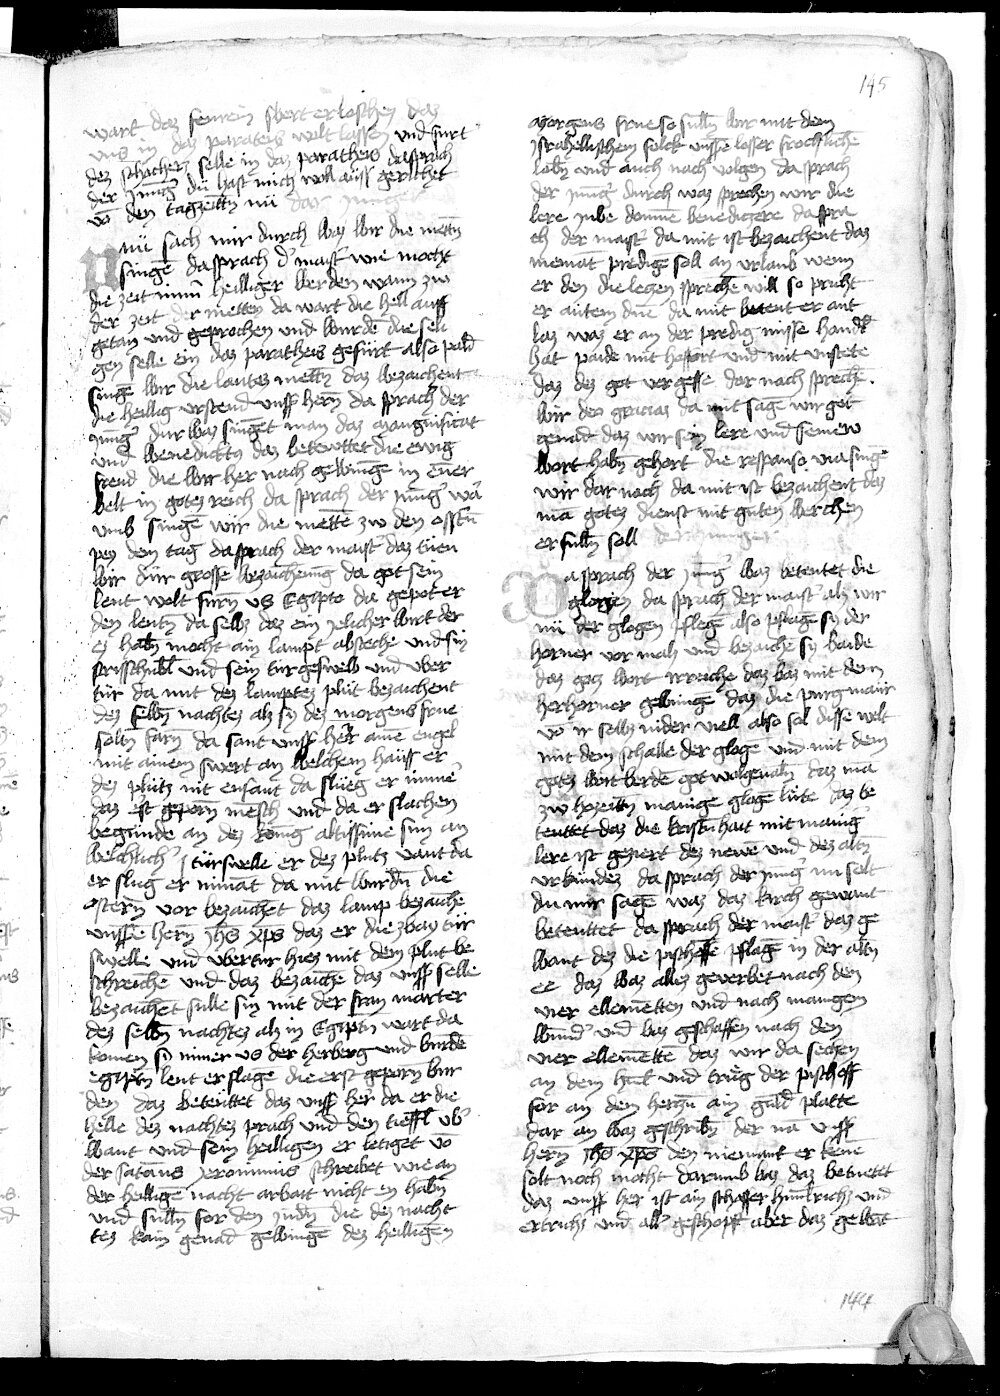 145
wart daz feurein swert erloschen daz
uns in daz parateis wolt lassen und furt
dez schachers selle in daz paratheis da sprach
der Jung̅ du hast mich woll auss gericht
vo̅ den tagzeitt̅n nu
Nu sach mir durch waz wir die mett̅n
singe̅ da sprach d' maist' wie mocht
die zeit imm̅ heilliger werden wann zw
der zeit der metten da wart die hell auff
getan und geprochen und wurde̅ die seli
gen selle ein daz paratheis gefurt also pald
singe̅ wir die lautes mett̅n daz bezaichent
die heillig urstend unss' hern̅ da sprach der
Jung' dur waz singe̅t man daz magnificat
und Benedictus daz betewttet die ewig
freud die wir her nach gewinge̅ in ener
welt in gotes reich da sprach der Jung' wa̅
umb singe̅ wir die mette̅ zw den osst'n̅
pey dem tag̅ da sprach der maist' daz tuen
wir dur grosse bezaichenu̅g da got sein
leut wolt furn̅ us Egipto da gepot er
den leutn̅ da selbz daz ein yelicher wirt der
ez hab̅n mocht ain lampt abstech̅e und sin
und sein turgeswelb und uber
tur da mit dez lamptes plut bezaichent
dez selb̅n nachtes alz sy dez morgens frue
solt̅n farn̅ da sant unss' her̅ aine̅ engel
mit ainem swert an welchem hauss er
dez plutz nit enfant da slueg er imme̅
daz est gepor̅n mesch und da er slachen
begunde an dez konig altissime sun an
welchlich' turswelle er dez plutz vant da
er slug er nima̅t da mit wurd̅n die
ostern̅ vor bezaiche̅t daz lamp bezaiche̅
unsse̅ hern̅ Jhs xps daz er die zway tur
swelle und ubertur hies mit dem plut be
schreiche̅n und daz bezaiche̅ daz unss' selle
bezaiche̅t sulle sin mit der fron marter
dez selb̅n nachtes alz in Egiptn̅ wart da
komen sy nimer us der herberg und wurde̅
egiptn̅ leut erslage̅ die erst geporn̅ wur
den daz beteuttet daz unss' her̅ da er die
helle dez nachtes prach und den tieffl ub'
want und sein heilligen er letiget vo̅
der satanas Yeronimus schreibet wie an
der heillige̅ nacht arbait nicht en hab̅n
und sull̅n for den Judn̅ die dez nacht
tes kain genad gewinge̅ dez heillige̅n
morgens frue so sull̅n wir mit dem
Israhellischem folck unsse̅ losser frochliche̅
lob̅n und auch nach volgen da sprach
der Jung̅ durch waz sprechen wir die
lere Jube domine benedicere da spra
ch der maist' da mit ist bezaichent daz
niema̅t predige̅ soll an urlaub wenn
er den die legen spreche̅ will so pricht
er autem dn̅e da mit beteut er ant
laz waz er an der predig misse handl̅
hat paide mit hoffort und mit unstete
daz dez got vergesse dar nach spreche̅
wir deo gracias da mit sage̅ wir got
genad daz wir sein lere und seinew
wort hab̅n gehort die responso' via singe̅
wir dar nach da mit ist bezaichent daz
ma̅ gotes dienst mit guten werchen
erfull̅n soll der Junger
Da sprach der Jung' waz betentet die
glogen da sprach der maist' alz wir
nu der glogen pflege̅ also pflage̅ sy der
horner vor malz und bezaiche̅ sy baide
daz gotz wort daz waz mit dem
herhorner gewinge̅ daz die purgmaur
vo̅ ir selbz nider viell also sol disse welt
mit dem schalle der gloge̅ und mit dem
gotes wort werde̅ got wolgeuall̅n daz ma̅
zw hozeitn̅ manige gloge̅ lute daz be
teuttet daz die kristn̅hait mit manig̅
lere ist geziert dez newe̅ und dez alt̅n
urkundez da sprach der Jung' nu solt
du mir sage̅ waz daz kirch gewant
beteuttet da sprach der maist' daz ge
want dez die pischoffe̅ pflage̅ in der alt̅n
ee daz waz allez geverbet nach den
vier ellemette̅n und nach mangen
wund' und waz geschaffen nach den
vier ellemette̅ daz wir da sechen
an dem hut und trueg der pischoff
for an dem herz̅n ain guld̅ platte
dar an waz geschrib̅n der na̅ unss'
hern̅ Jhs xps den niemant erkene̅
solt noch mocht darumb waz daz betuetet
daz unss' her ist ain schaffer himelrichs und
ertrichs und all' geschopff aber daz gewa̅t
144